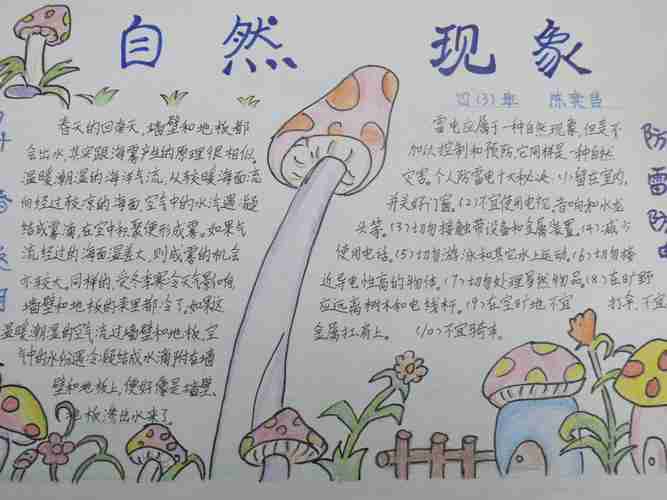 自然现象
四(3)班
春天的回南天,墙壁和地板都
会出水,其实跟海雾产生的原理很相似。
温暖潮湿的海洋气流,从较暖海面流
向经过较凉的海面,空气中的水汽遇冷凝
结成雾滴,在空中积聚便形成雾。如果气
流经过的海面温差大,则成雾的机会
亦较大。同样的,受冬季寒冷天气影响,
墙壁和地板的表里都冷了,如果这
温暖潮湿的空气流过墙壁和地板,空
气中的水份遇冷凝结成水滴附在墙
壁和地板上,便好像是墙壁、
地板渗出水来了。
雷电应属于一种自然现象,但是不
加以控制和预防,它同样是一种自然
灾害。个人防雷电十大秘决:(1)留在室内,
并关好门窗。(2)不宜使用电视、音响和水龙
头等。(3)切勿接触带设备和金属装置。(4)减少
使用电话。(5)切勿游泳和其它水上运动。(6)切勿接
近导电性高的物体。(7)切勿处理易燃物品。(8)在旷野
应远离树木和电线杆。(9)在空旷地不宜打伞,不宜
金属扛肩上。(10)不宜骑车。
防雷防电